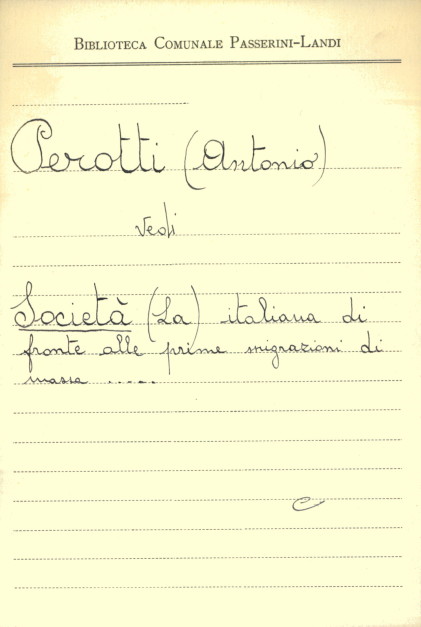 Biblioteca Comunale Passerini-Landi
Perotti (Antonio)
Vedi
Società (La) italiana di
fronte alle prime migrazioni di
massa .....
c